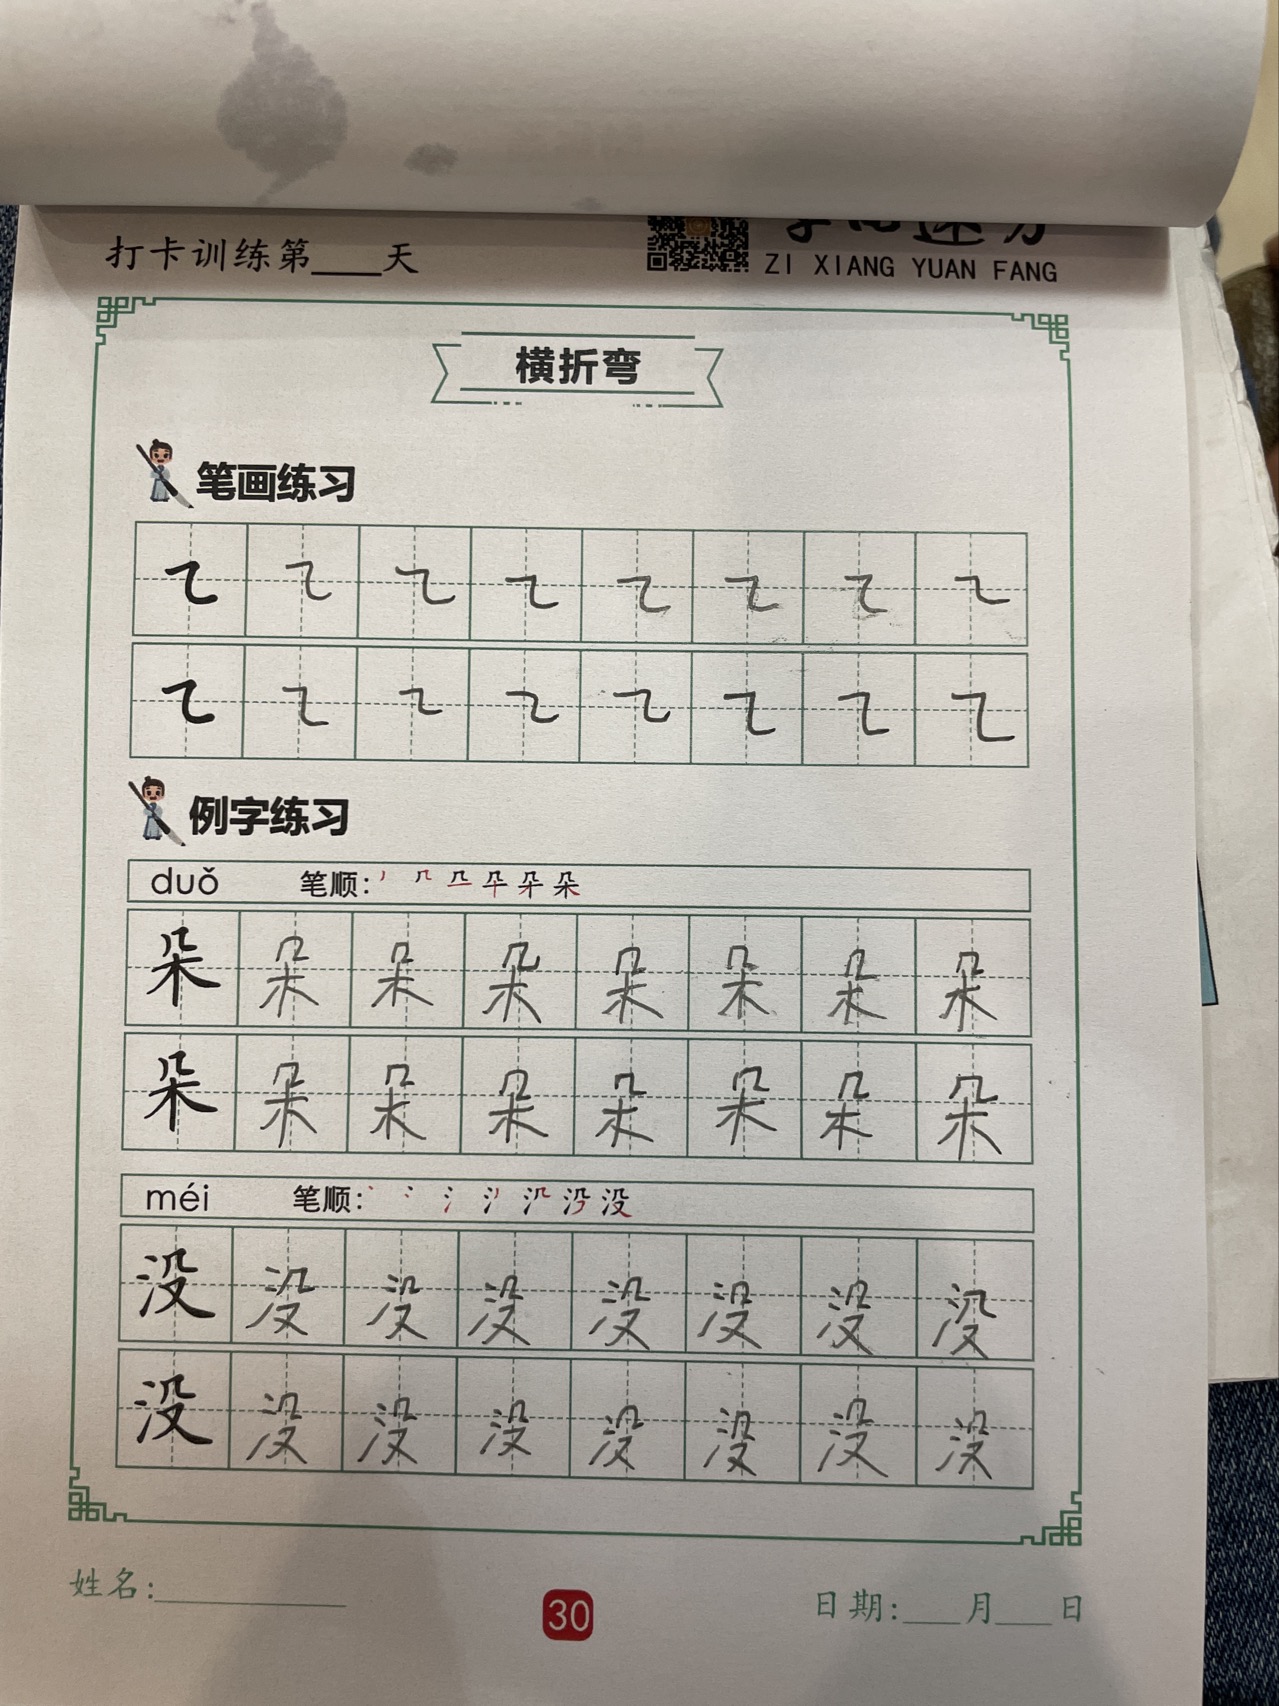 打卡训练第___天
ZI XIANG YUAN FANG
横折弯
笔画练习
例字练习
duǒ 笔顺:
朵 朵 朵 朵 朵 朵 朵 朵
朵 朵 朵 朵 朵 朵 朵 朵
méi 笔顺: 没
没 没 没 没 没 没 没 没
没 没 没 没 没 没 没 没
姓名:___________
30
日期:___月___日